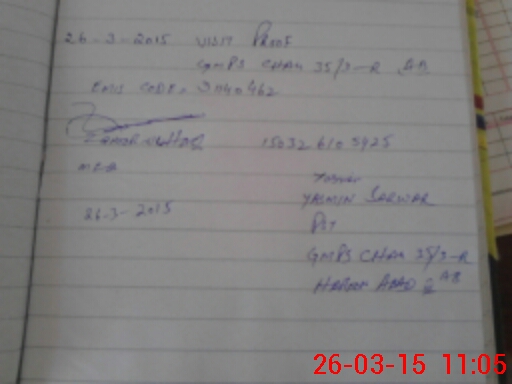 26-3-2015 VISIT PROOF
GMPS CHAK 35/3-R AB
EMIS CODE = 31140462
MEA
26-3-2015
15032 610 5925
YASMIN SARWAR
PST
GMPS CHAK 35/3-R
HAROON ABAD
26-03-15 11:05